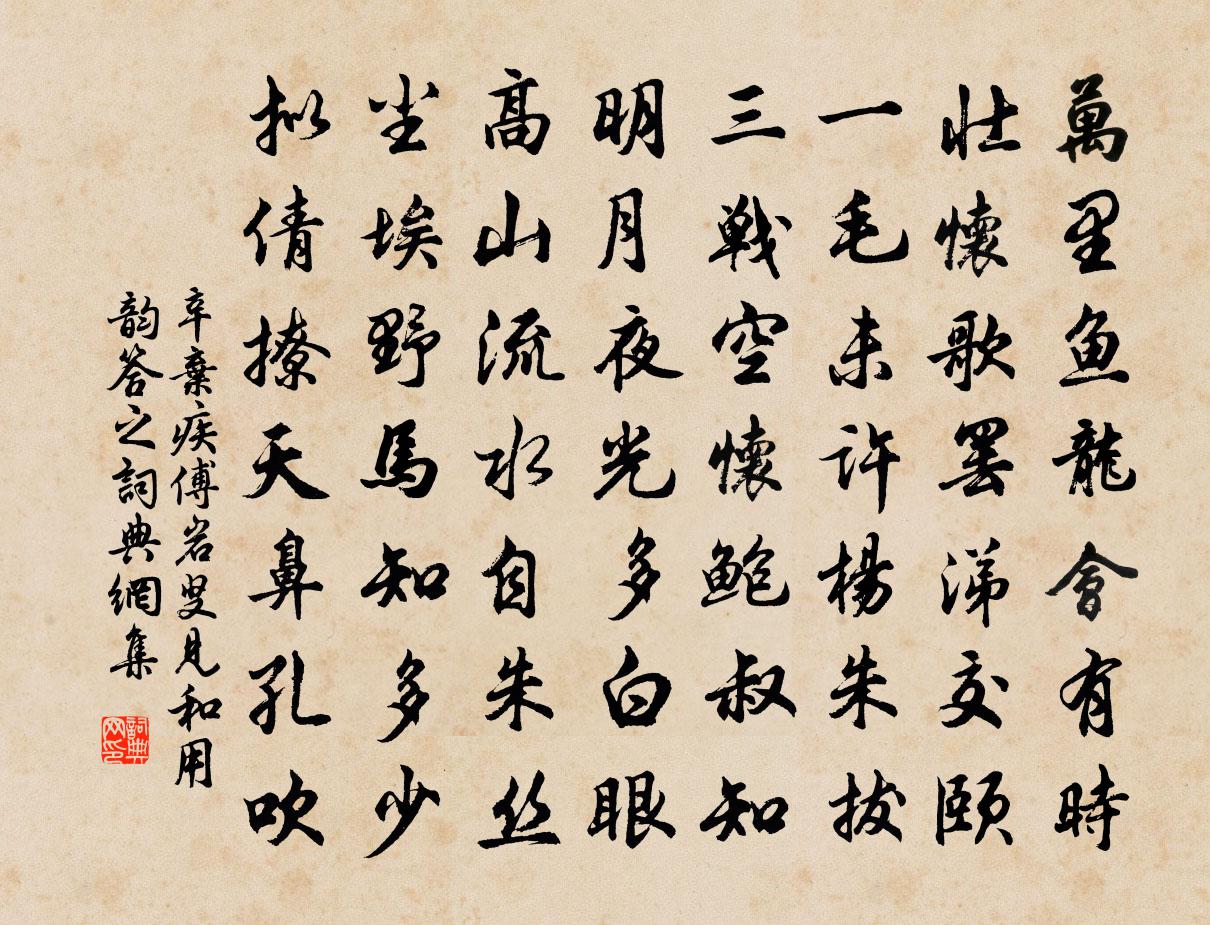 萬里魚龍會有時
壯懷歌罷涕交頤
一毛未許楊朱拔
三戦空懷鮑叔知
明月夜光多白眼
高山流水自朱丝
尘埃野馬知多少
拟倩撩天鼻孔吹
辛棄疾傅岩叟見和用
韵答之詞典網集
詞典网印